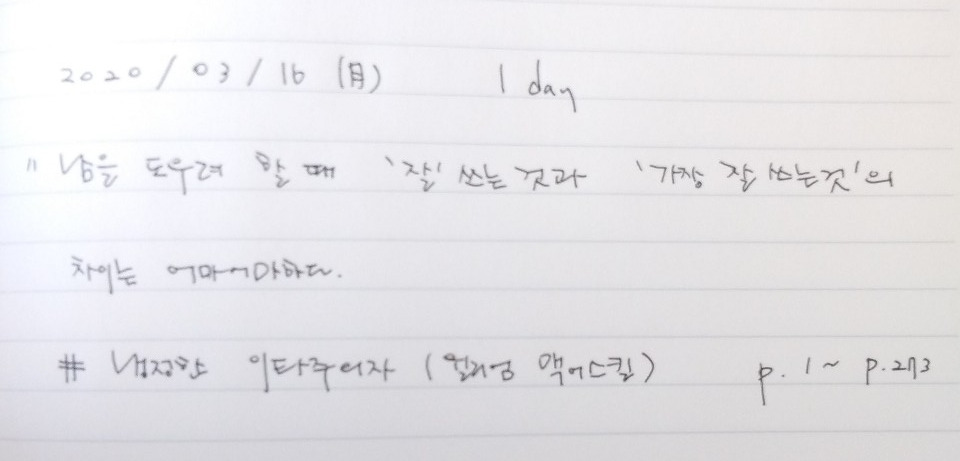 2020 / 03 / 16 (月) 1 day
" 남을 도우려 할 때 '잘' 쓰는 것과 '가장 잘 쓰는것'의
차이는 어마어마하다.
# 냉정한 이타주의자 (윌리엄 맥어스킬) p. 1 ~ p.273